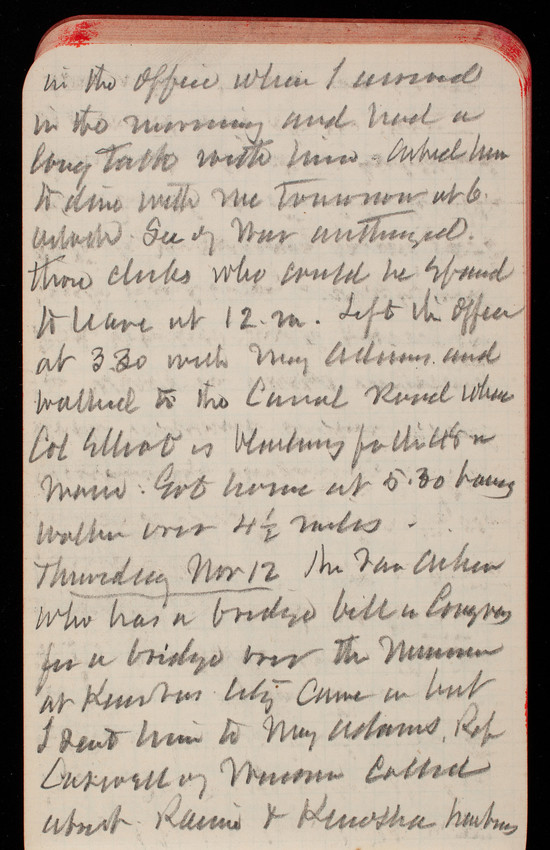 in the office when I arrived
in the morning and had a
long talk with him. Asked him
to dine with me tomorrow at 6
oclock. Sec of War authorized
those clerks who could be spared
to leave at 12. m. Left the office
at 3.30 with Maj Adams and
walked to the Canal Road where
Col Elliot is blasting for the 48 in
main. Got home at 5.30 having
walked over 4½ miles.
Thursday Nov 12 Mr Van
who has a bridge bill in Congress
for a bridge over the Missouri
at Kansas City came in but
I sent him to Maj Adams. Rep
Caswell of Wisconsin called
about Racine & Kenosha harbors